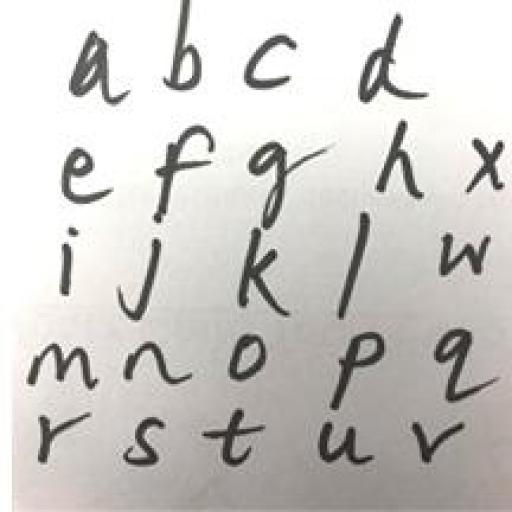 a b c d
e f g h x
i j k l w
m n o p q
r s t u v